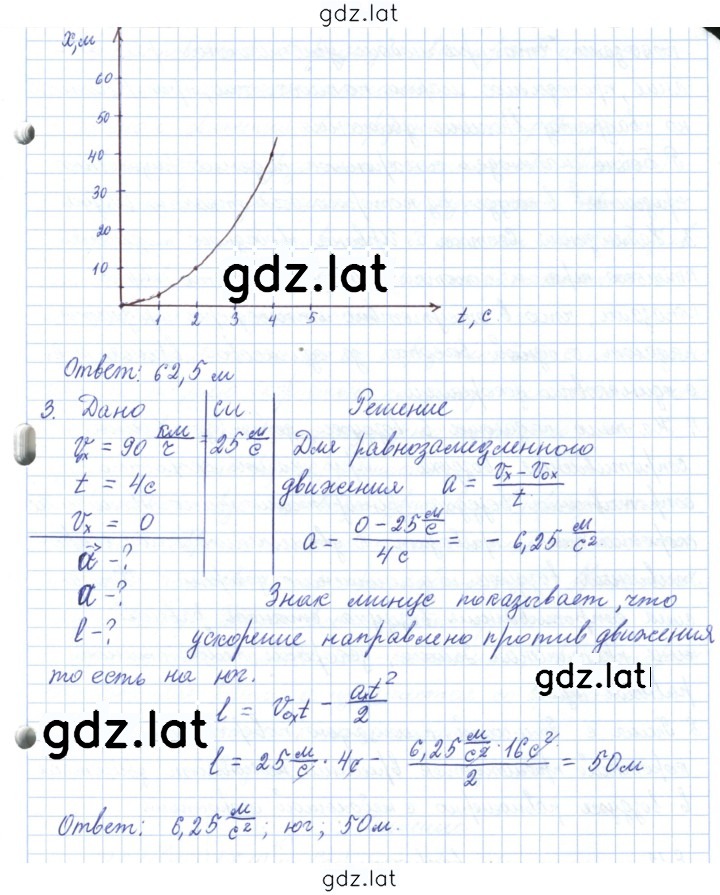 gdz.lat
x, м
60
50
40
30
20
10
gdz.lat
1 2 3 4 5 t, с
Ответ: 62,5 м
3. Дано СИ Решение
vₓ = 90 км/ч = 25 м/с Для равнозамедленного
t = 4с движения a = (vₓ – v₀ₓ)/t
vₓ = 0 a = (0 – 25 м/с)/4с = – 6,25 м/с²
a⃗ –?
a –? Знак минус показывает, что
l –? ускорение направлено против движения
то есть на юг. gdz.lat
l = v₀ₓt – aₓt²/2
gdz.lat
l = 25 м/с · 4с – (6,25 м/с² · 16с²)/2 = 50м
Ответ: 6,25 м/с²; юг; 50м.
gdz.lat